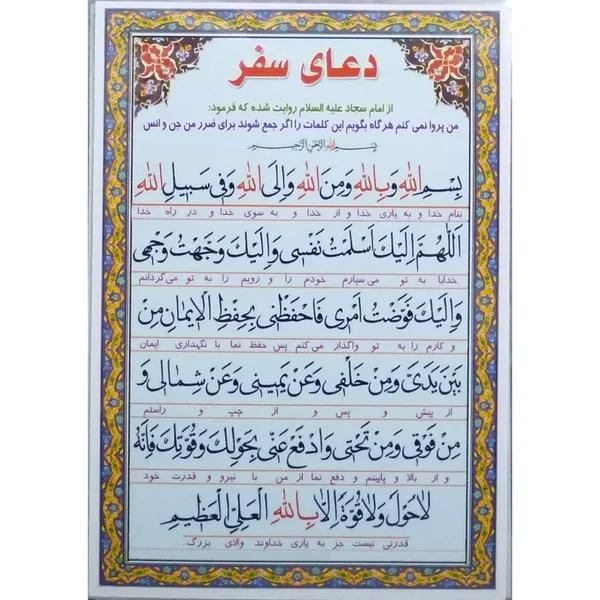 دعای سفر
از امام سجاد علیه السلام روایت شده که فرمود:
من پروا نمی کنم هرگاه بگویم این کلمات را اگر جمع شوند برای ضرر من جن و انس
بِسْمِ اللهِ الرَّحْمٰنِ الرَّحِیْمِ
بِسْمِ اللهِ وَبِاللهِ وَمِنَ اللهِ وَاِلَى اللهِ وَفی سَبیلِ اللهِ
بنام خدا و به یاری خدا و از خدا و به سوی خدا و در راه خدا
اَللّهُمَّ اِلَیْكَ اَسْلَمْتُ نَفْسی وَاِلَیْكَ وَجَّهْتُ وَجْهی
خدایا به تو می‌سپارم خودم را و رویم را به تو می‌گردانم
وَاِلَیْكَ فَوَّضْتُ اَمْری فَاحْفَظْنی بِحِفْظِ الْاِیمانِ مِنْ
و کارم را به تو واگذار می کنم پس حفظ نما با نگهداری ایمان
بَیْنِ یَدَیَّ وَمِنْ خَلْفی وَعَنْ یَمینی وَعَنْ شِمالی وَ
از پیش و پس و از چپ و راستم
مِنْ فَوْقی وَمِنْ تَحْتی وَادْفَعْ عَنّی بِحَوْلِكَ وَقُوَّتِكَ فَاِنَّهُ
و از بالا و پایینم و دفع نما از من با نیرو و قدرت خود
لاحَوْلَ وَلا قُوَّةَ اِلاّ بِاللهِ الْعَلِیِّ الْعَظیمِ
قدرتی نیست جز به یاری خداوند والای بزرگ.